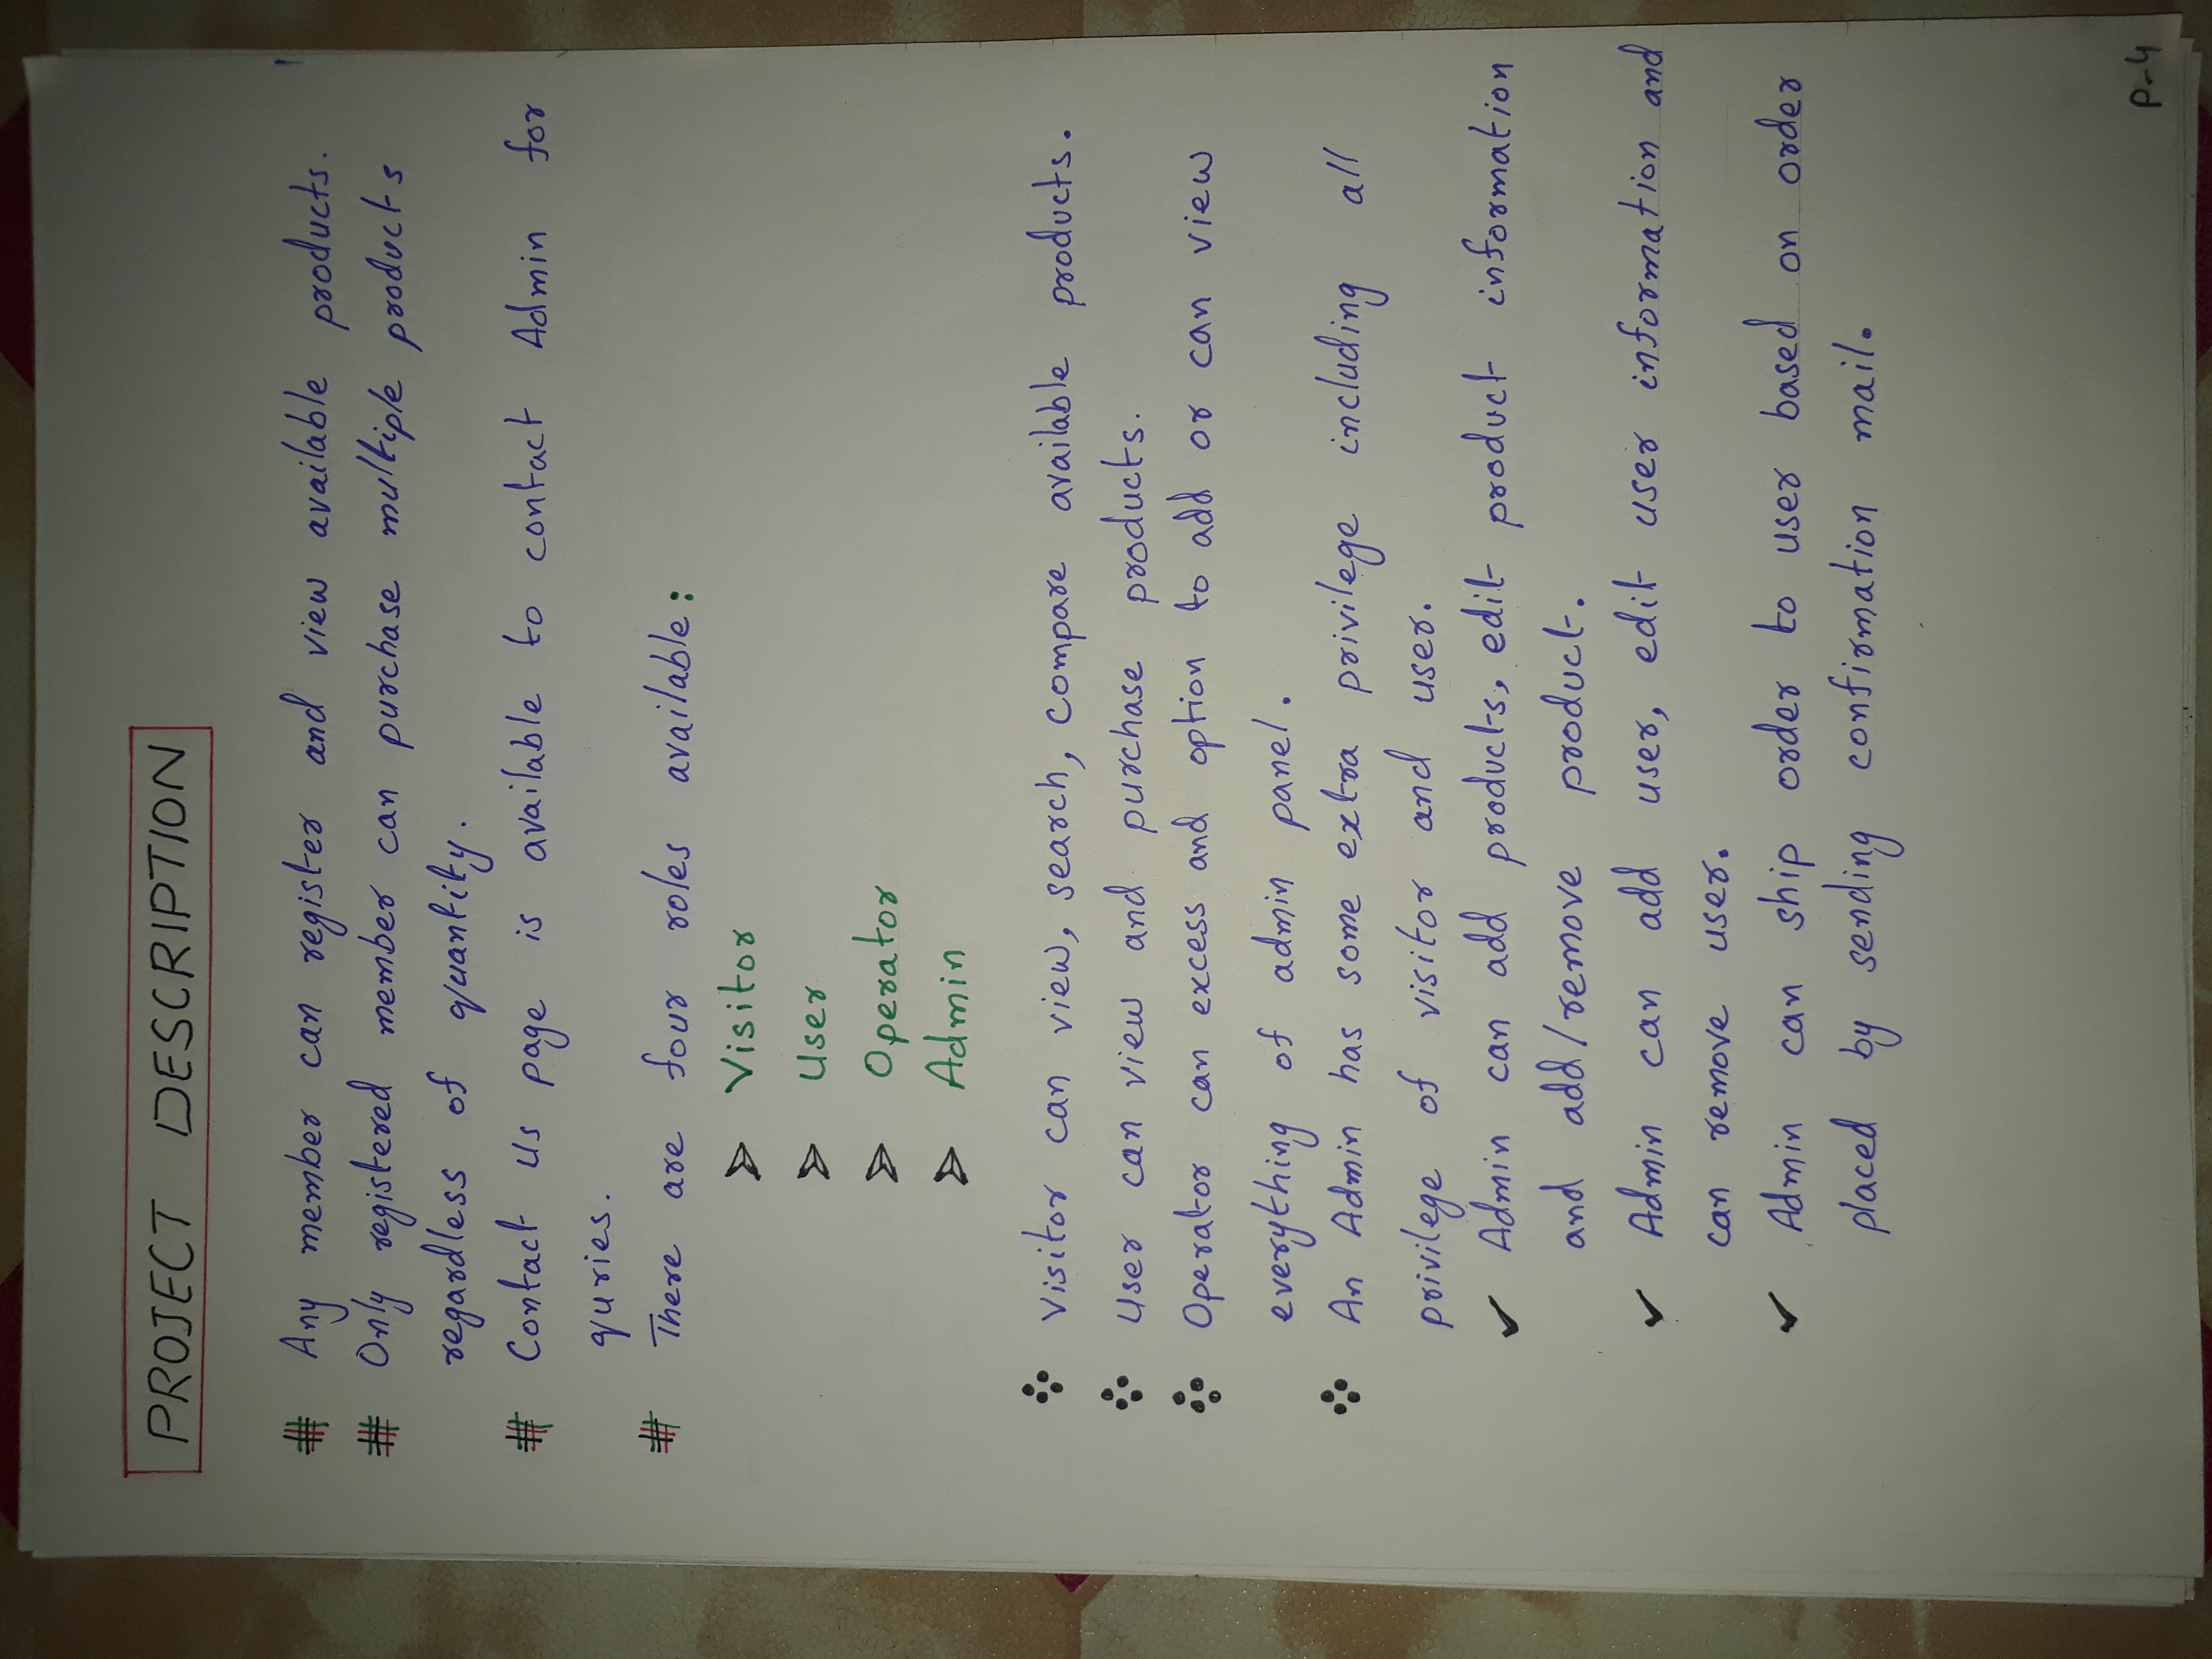 PROJECT DESCRIPTION
# Any member can register and view available products.
# Only registered member can purchase multiple products
regardless of quantity.
# Contact Us page is available to contact Admin for
quries.
# There are four roles available:
➢ Visitor
➢ User
➢ Operator
➢ Admin
❖ Visitor can view, search, compare available products.
❖ User can view and purchase products.
❖ Operator can excess and option to add or can view
everything of admin panel.
❖ An Admin has some extra privilege including all
privilege of visitor and user.
✓ Admin can add products, edit product information
and add/remove product.
✓ Admin can add user, edit user information and
can remove user.
✓ Admin can ship order to user based on order
placed by sending confirmation mail.
P-4